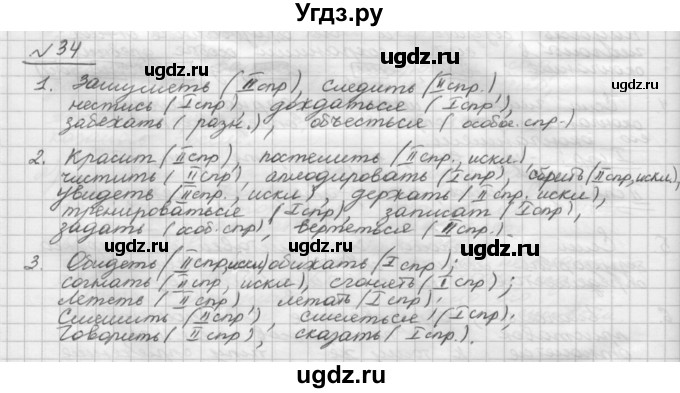 Угдз.ру
№ 34
ugdz.ru ugdz.ru
1. Зашуметь (II спр), следить (II спр.)
нестись (I спр), дождаться (I спр),
забежать (разн.), объесться (особое. спр.)
ugdz.ru ugdz.ru
2. Красит (II спр), постелить (II спр., искл)
чистить (II спр), аплодировать (I спр), обрить (II спр, искл),
увидеть (II спр., искл), держать (II спр. искл),
тренироваться (I спр), записат (I спр),
задать (особ. спр), вертеться (II спр.)
ugdz.ru ugdz.ru
3. Обидеть (II спр, искл) обижать (I спр);
согнать (II спр, искл), сгонять (I спр);
лететь (II спр), летать (I спр);
Смешить (II спр), смеяться (I спр);
Говорить (II спр), сказать (I спр.).
ugdz.ru ugdz.ru
ugdz.ru